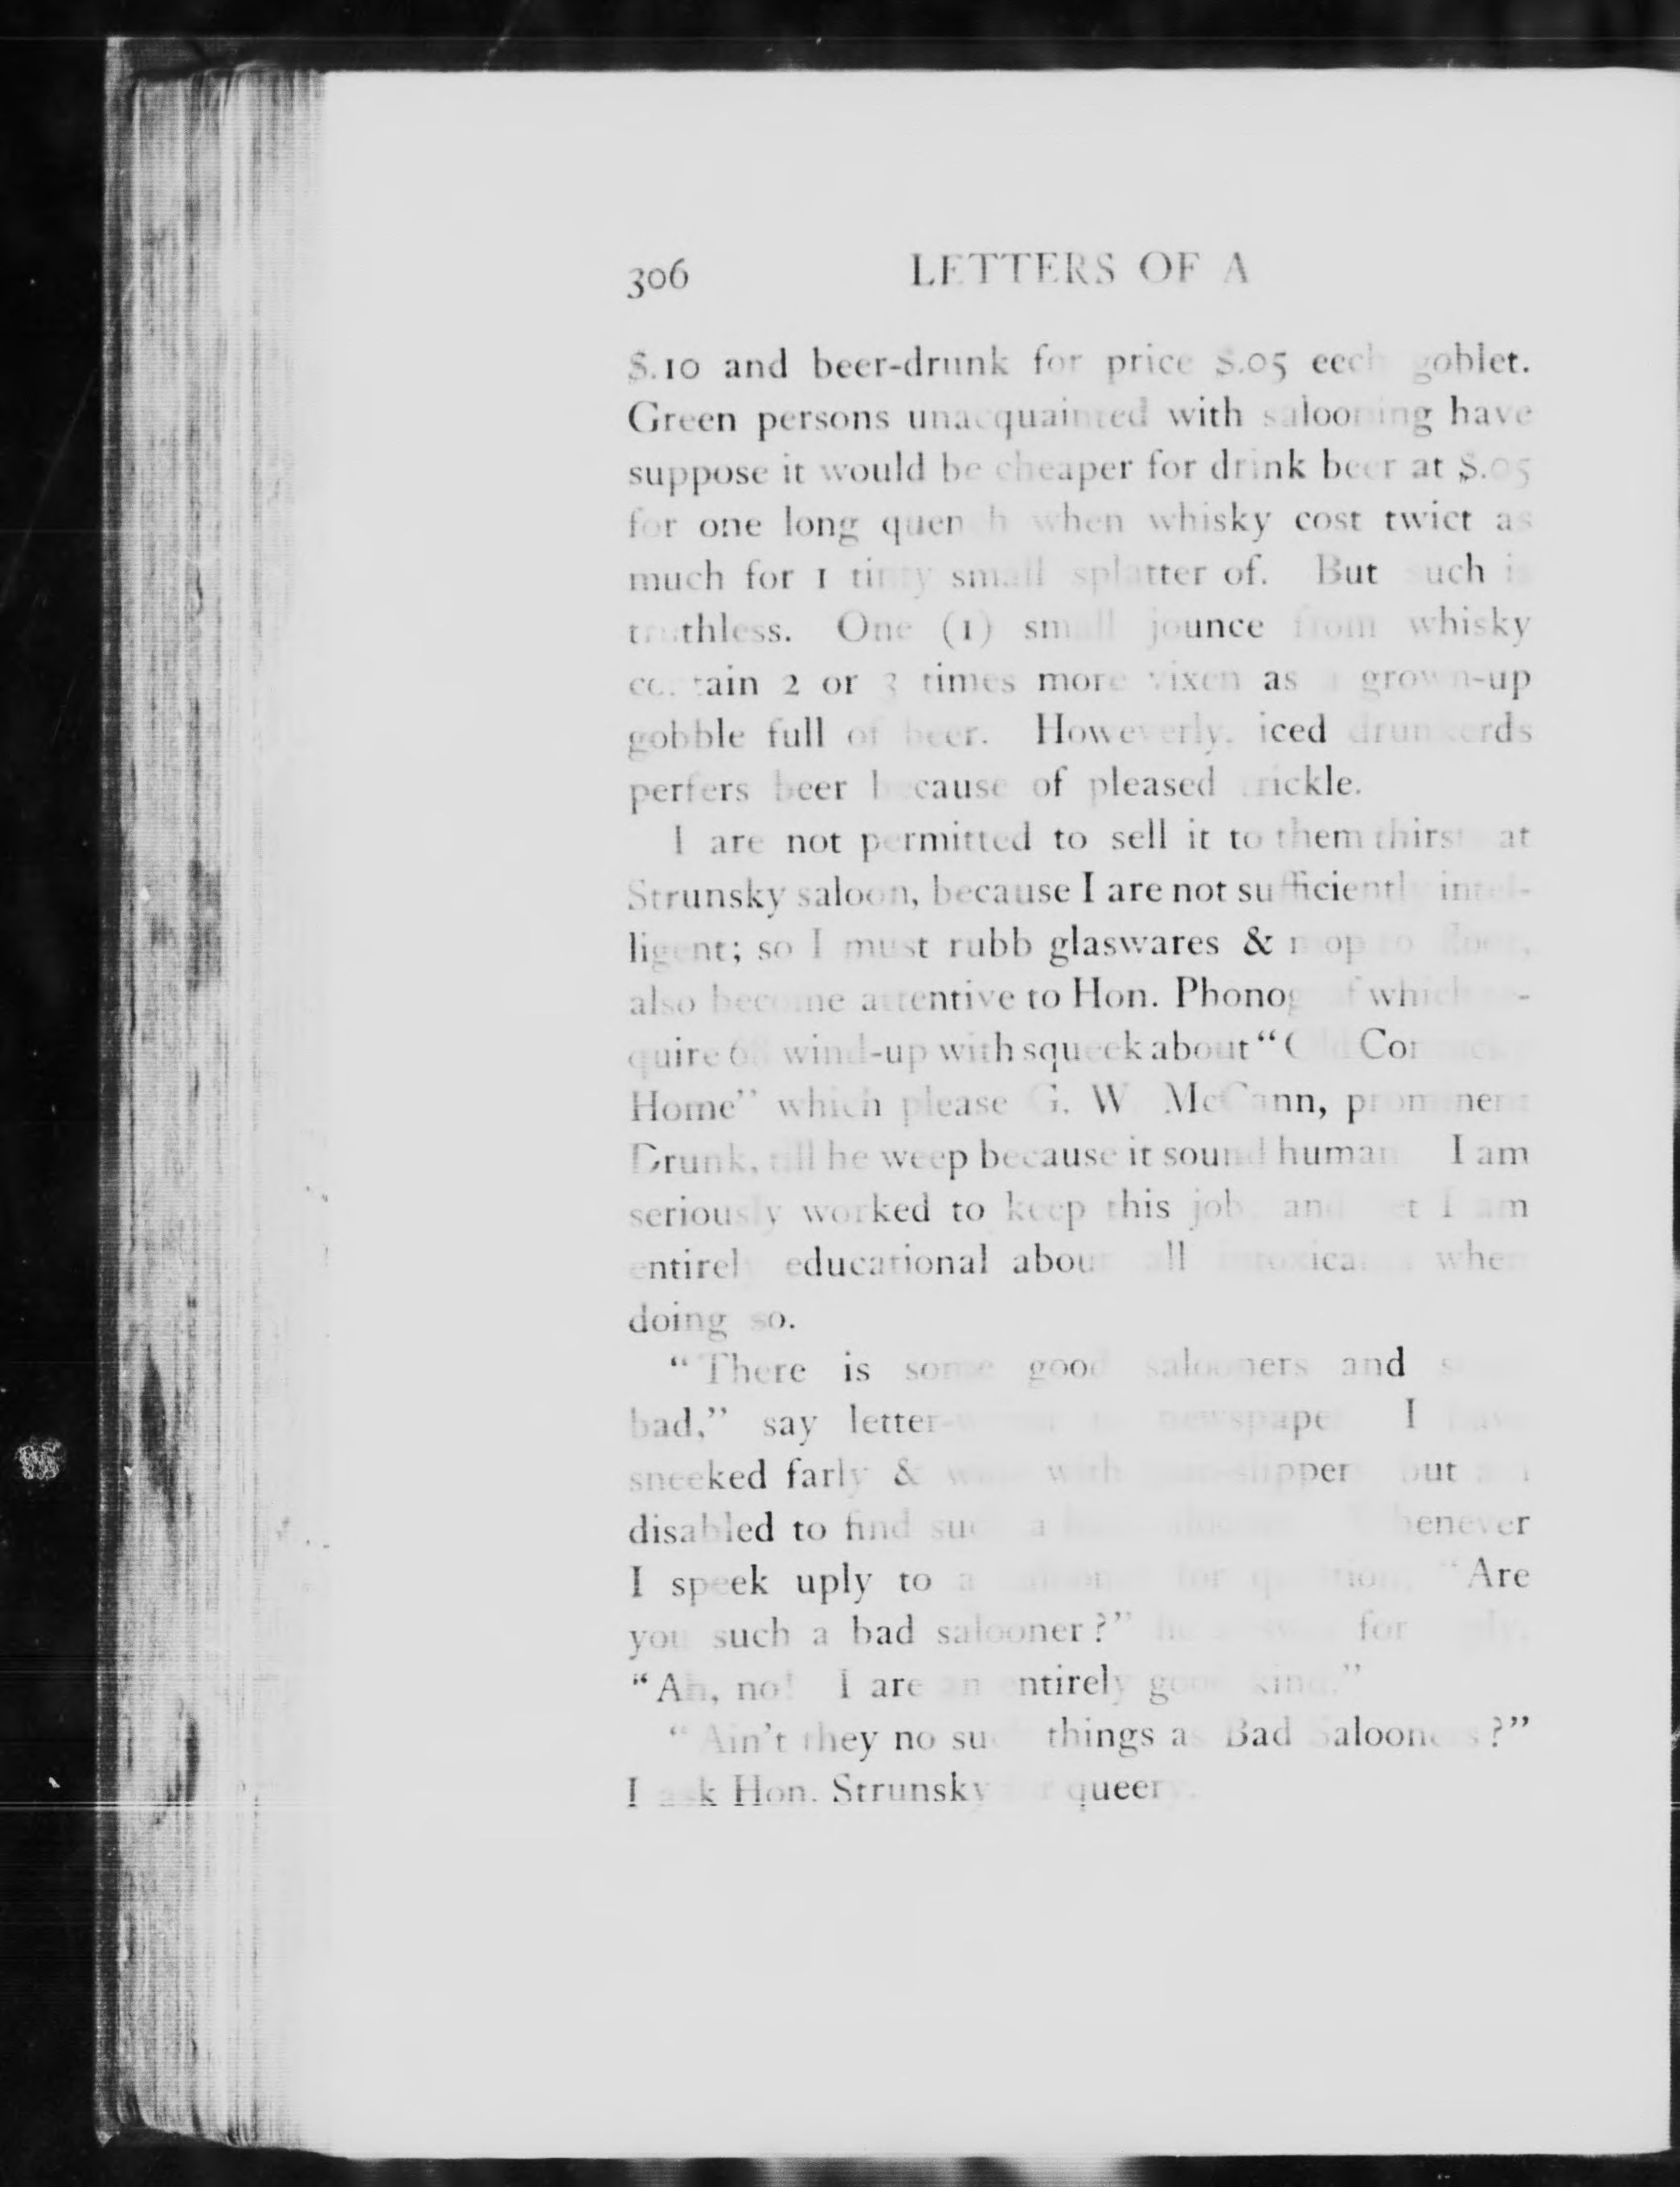 306 LETTERS OF A
$.10 and beer-drunk for price $.05 eech goblet.
Green persons unacquainted with salooning have
suppose it would be cheaper for drink beer at $.05
for one long quench when whisky cost twict as
much for 1 tinty small splatter of. But such is
truthless. One (1) small jounce from whisky
contain 2 or 3 times more vixen as a grown-up
gobble full of beer. Howeverly, iced drunkerds
perfers beer because of pleased trickle.
I are not permitted to sell it to them thirsts at
Strunsky saloon, because I are not sufficiently intel-
ligent; so I must rubb glaswares & mop to floor,
also become attentive to Hon. Phonograf which re-
quire 68 wind-up with squeek about "Old
Home" which please G. W. McCann, prominent
Drunk, till he weep because it sound human. I am
seriously worked to keep this job, and yet I am
entirely educational about all intoxicants when
doing so.
"There is some good salooners and some
bad," say letter-writer in newspaper. I have
sneeked farly & wide with gum-slippers but am
disabled to find such a bad salooner. Whenever
I speek uply to a salooner for question, "Are
you such a bad salooner?" he answer for reply,
"Ah, no! I are an entirely good kind."
"Ain't they no such things as Bad Salooners?"
I ask Hon. Strunsky for queery.